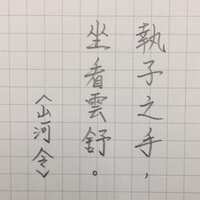 執子之手，
坐看雲舒。
〈山河令〉